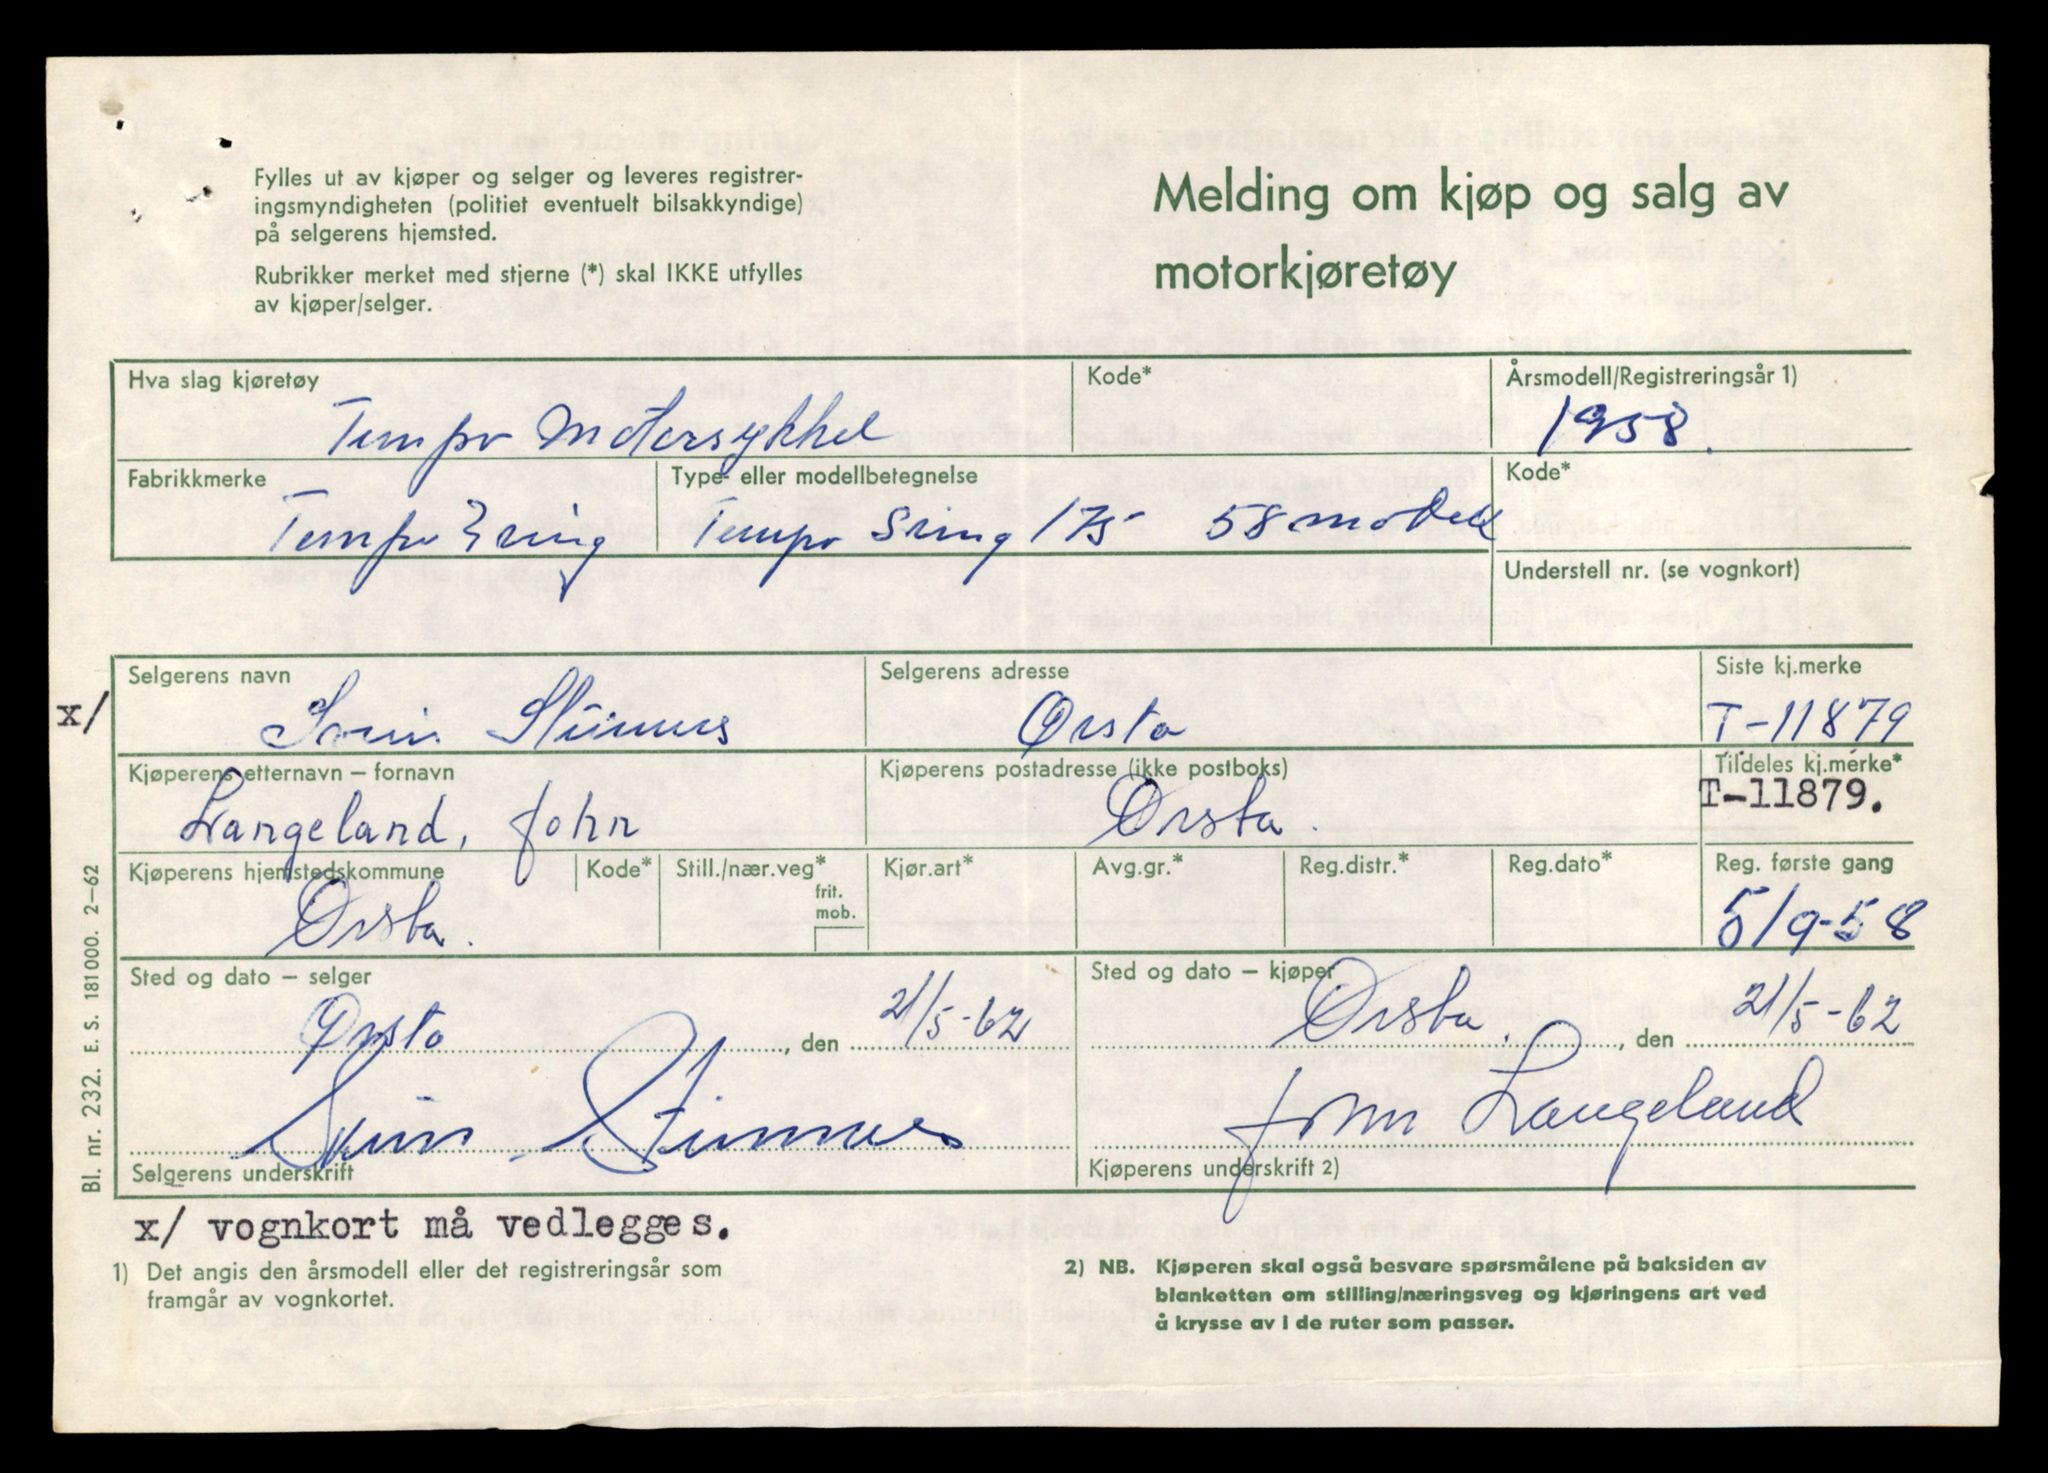 Fylles ut av kjøper og selger og leveres registrer-
ingsmyndigheten (politiet eventuelt bilsakkyndige)
på selgerens hjemsted.
Rubrikker merket med stjerne (*) skal IKKE utfylles
av kjøper/selger.
Melding om kjøp og salg av
motorkjøretøy
Hva slag kjøretøy
Tempo Motorsykkel
Kode*
Årsmodell/Registreringsår 1)
1958.
Fabrikkmerke
Tempo
Type- eller modellbetegnelse
Tempo 175 58 modell
Kode*
Understell nr. (se vognkort)
x/
Selgerens navn
Selgerens adresse
Ørsta
Siste kj.merke
T-11879
Kjøperens etternavn – fornavn
Langeland, John
Kjøperens postadresse (ikke postboks)
Ørsta.
Tildeles kj.merke*
T-11879.
Kjøperens hjemstedskommune
Ørsta.
Kode*
Still./nær.veg*
frit.
mob.
Kjør.art*
Avg.gr.*
Reg.distr.*
Reg.dato*
Reg. første gang
5/9-58
Sted og dato – selger
Ørsta, den 21/5-62
Selgerens underskrift
Sted og dato – kjøper
Ørsta., den 21/5-62
John Langeland
Kjøperens underskrift 2)
Bl. nr. 232. E. S. 181000. 2–62
x/ vognkort må vedlegges.
1) Det angis den årsmodell eller det registreringsår som
framgår av vognkortet.
2) NB. Kjøperen skal også besvare spørsmålene på baksiden av
blanketten om stilling/næringsveg og kjøringens art ved
å krysse av i de ruter som passer.